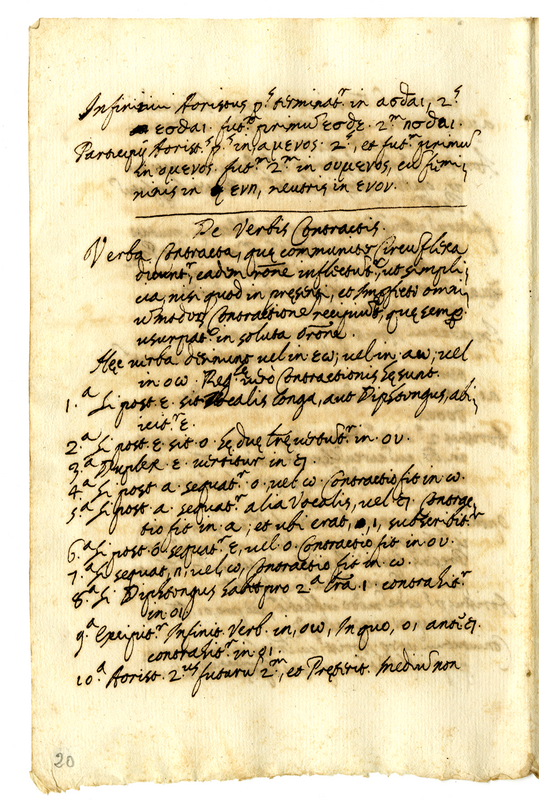 Infinitivi Aoristus p.s terminat.r in ασθαι, 2.s
εσθαι. fut.m primũ εσθε. 2.m ησθαι.
Participij Aorist.s p.s in αμενος. 2.s, et fut.m primũ
in ομενος. fut.m 2.m in ουμενος, cũ fœmi,
ninis in ενη, neutris in ενον.
De Verbis Contractis.
Verba Contracta, quę communiter Circũflexa
dicunt.r, eadem rõne inflectũt.r, ut simpli,
cia, nisi quod in pręsenti, et Imperfecto omni,
ũ modorũ Contractione recipiunt, quę semp
usurpat.r in soluta orõne.
Hęc verba desinunt vel in εω; vel in αω, vel
in οω. Reg.e verò Contractionis hę sunt.
1.a Si post ε. sit Vocalis longa, aut Dipthongus, abi,
icit.r ε.
2.a Si post ε sit ο. hę duę lrę vertunt.r in ου.
3.a Duplex ε vertitur in ει.
4.a Si post α. sequat.r ο. vel ω Contractio fit in ω.
5.a Si post α. sequat.r alia Vocalis, vel ει. Contrac,
tio fit in α; et ubi erat, ι, subscribit.r
6.a Si post ο sequat.r ε, vel ο. Contractio fit in ου.
7.a Si sequat, η; vel, ω, Contractio fit in ω.
8.a Si Dipthongus habet pro 2.a lrã. ι. contrahit.r
in οι
9.a Excipit.r Infinit. Verb. in, οω, In quo, οι antiĩ ει.
contrahit.r in οι.
10.a Aorist. 2.us futurũ 2.m, et Pręterit. mediũ non
20